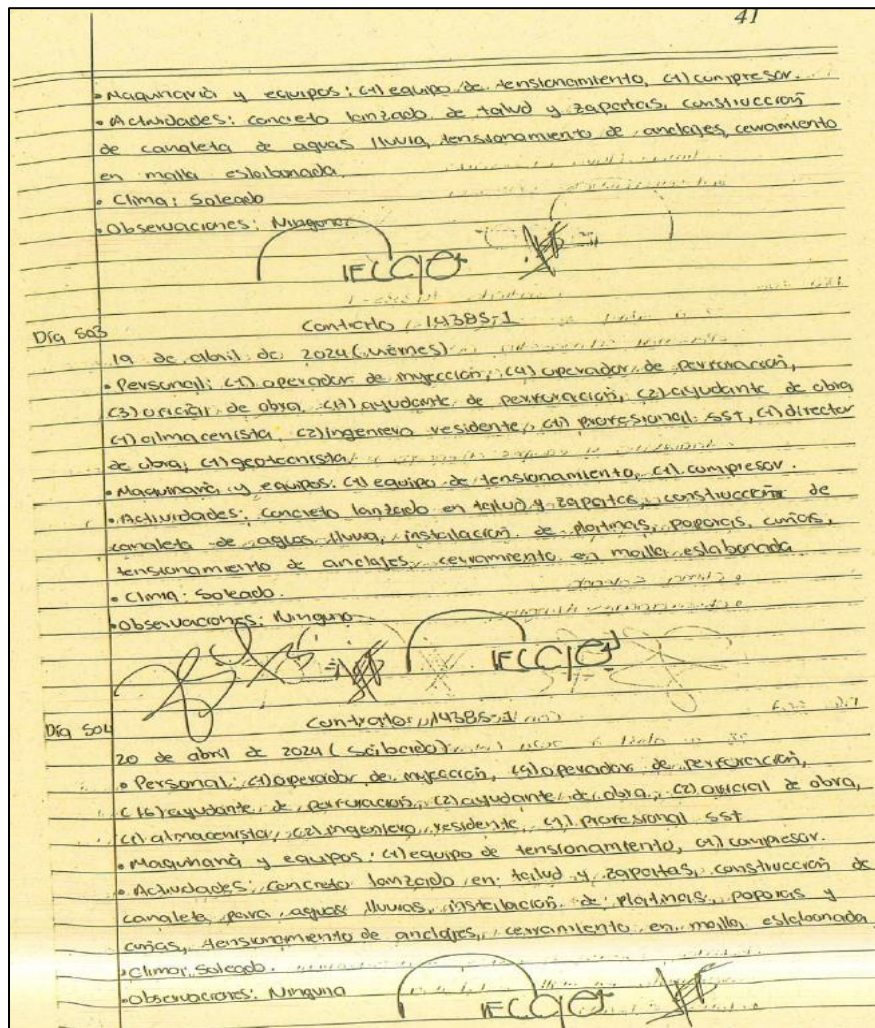 41
• Maquinaria y equipos: (1) equipo de tensionamiento, (1) compresor.
• Actividades: concreto lanzado de talud y zapatas, construcción
de canaleta de aguas lluvia, tensionamiento de anclajes, cerramiento
en malla eslabonada
• Clima: Soleado
• Observaciones: Ninguna
Día 503
Contrato 14385-1
19 de abril de 2024 (viernes)
• Personal: (1) operador de inyección, (4) operador de perforación,
(3) oficial de obra, ayudante de perforación, (2) ayudante de obra
(1) almacenista, (2) ingeniero residente, (1) profesional SST, (1) director
de obra, (1) geotecnista
• Maquinaria y equipos: (1) equipo de tensionamiento, (1) compresor.
• Actividades: concreto lanzado en talud y zapatas, construcción de
canaleta de aguas lluvia, instalación de platinas, poporas, cuñas,
tensionamiento de anclajes, cerramiento en malla eslabonada
• Clima: Soleado.
• Observaciones: Ninguna
Día 504
Contrato: 14385-1
20 de abril de 2024 (sábado)
• Personal: (1) operador de inyección, operador de perforación,
(16) ayudante de perforación, (2) ayudante de obra, (2) oficial de obra,
(1) almacenista, (2) ingeniero residente, (1) profesional SST
• Maquinaria y equipos: (1) equipo de tensionamiento, (1) compresor.
• Actividades: concreto lanzado en talud y zapatas, construcción de
canaleta para aguas lluvias, instalación de platinas, poporas y
cuñas, tensionamiento de anclajes, cerramiento en malla eslabonada
• Clima: Soleado.
• Observaciones: Ninguna